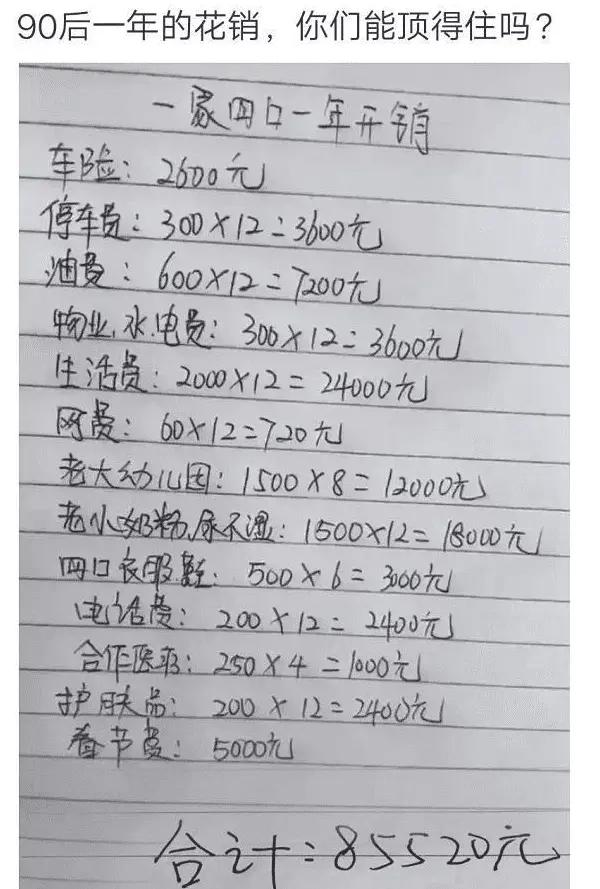 90后一年的花销，你们能顶得住吗？
一家四口一年开销
车险：2600元
停车费：300×12=3600元
油费：600×12=7200元
物业,水,电费：300×12=3600元
生活费：2000×12=24000元
网费：60×12=720元
老大幼儿园：1500×8=12000元
老小奶粉,尿不湿：1500×12=18000元
四口衣服,鞋：500×6=3000元
电话费：200×12=2400元
合作医疗：250×4=1000元
护肤品：200×12=2400元
春节费：5000元
合计：85520元